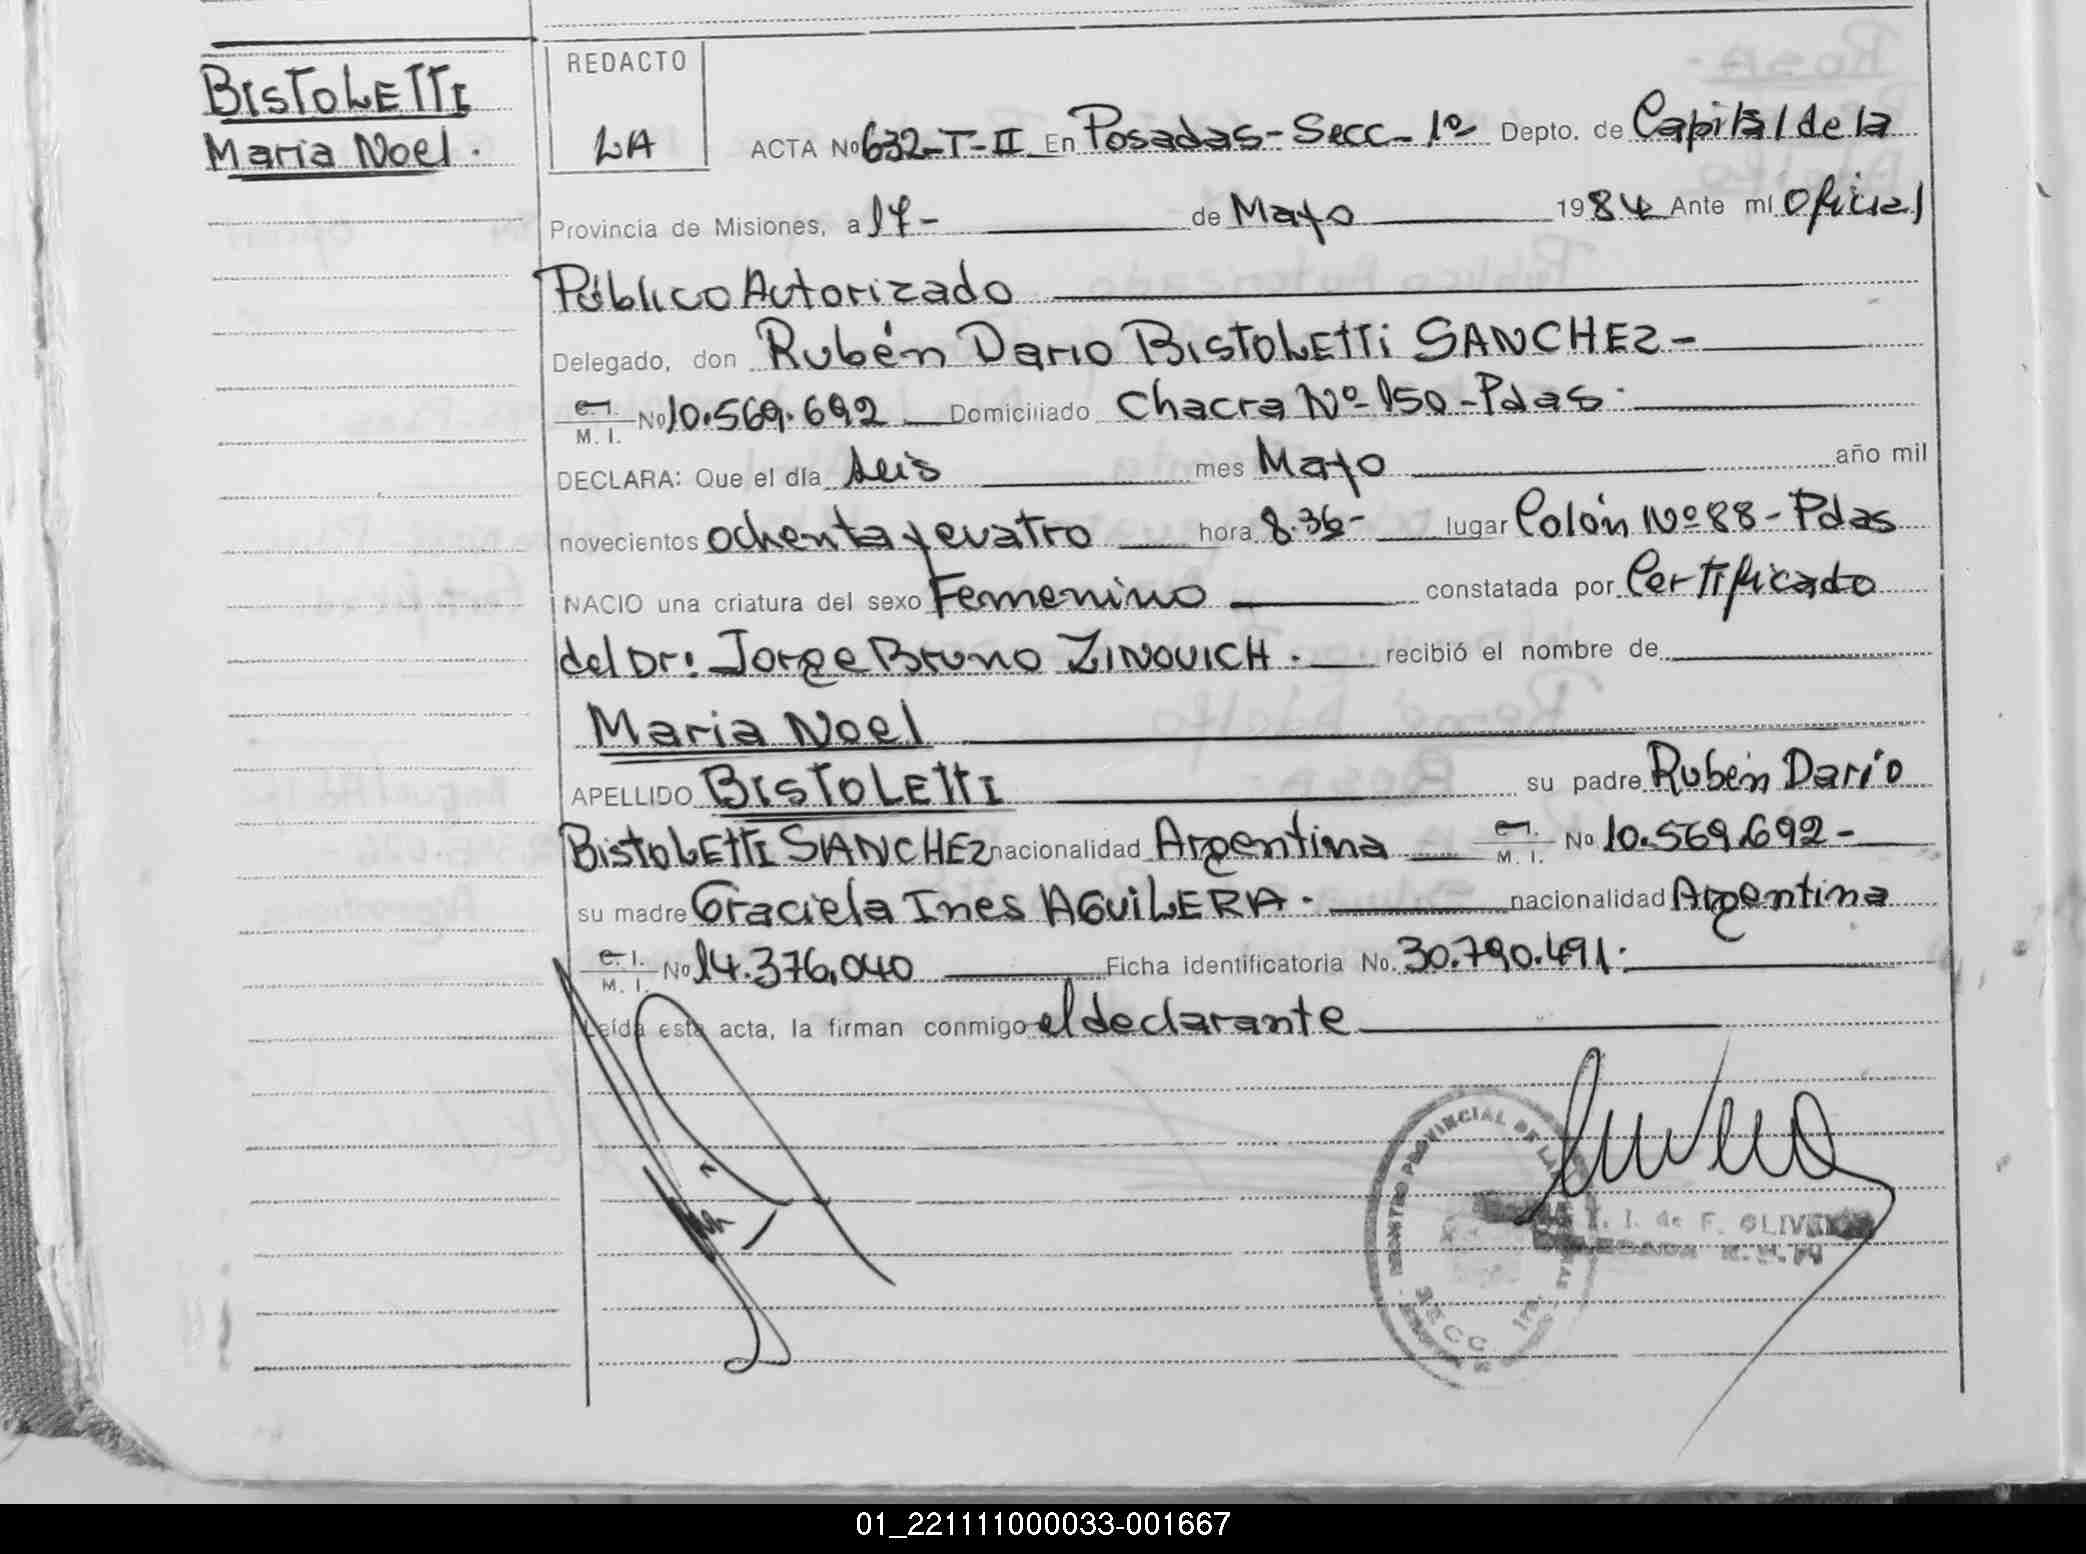 BISTOLETTI
Maria Noel.
REDACTO
LA
ACTA No 632-T-II En Posadas-Secc-1º Depto. de Capital de la
Provincia de Misiones, a 17- de Mayo 1984 Ante mi Oficial
Público Autorizado
Delegado, don Rubén Dario BISTOLETTI SANCHEZ-
C. I. / M. I. No 10.569.692 Domiciliado Chacra Nº 150-Pdas.
DECLARA: Que el día seis mes Mayo año mil
novecientos ochenta y cuatro hora 8.36- lugar Colón Nº 88-Pdas
NACIO una criatura del sexo Femenino constatada por Certificado
del Dr: Jorge Bruno ZINOVICH. recibió el nombre de
Maria Noel
APELLIDO BISTOLETTI su padre Rubén Darío
BISTOLETTI SANCHEZ nacionalidad Argentina C. I. / M. I. No 10.569.692-
su madre Graciela Ines AGUILERA. nacionalidad Argentina
C. I. / M. I. No 14.376.040 Ficha identificatoria No. 30.790.491.
Leída esta acta, la firman conmigo el declarante
REGISTRO PROVINCIAL DE LAS
SECC 1ra.
I. de F. OLIVEIRA
DELEGADA
01_221111000033-001667